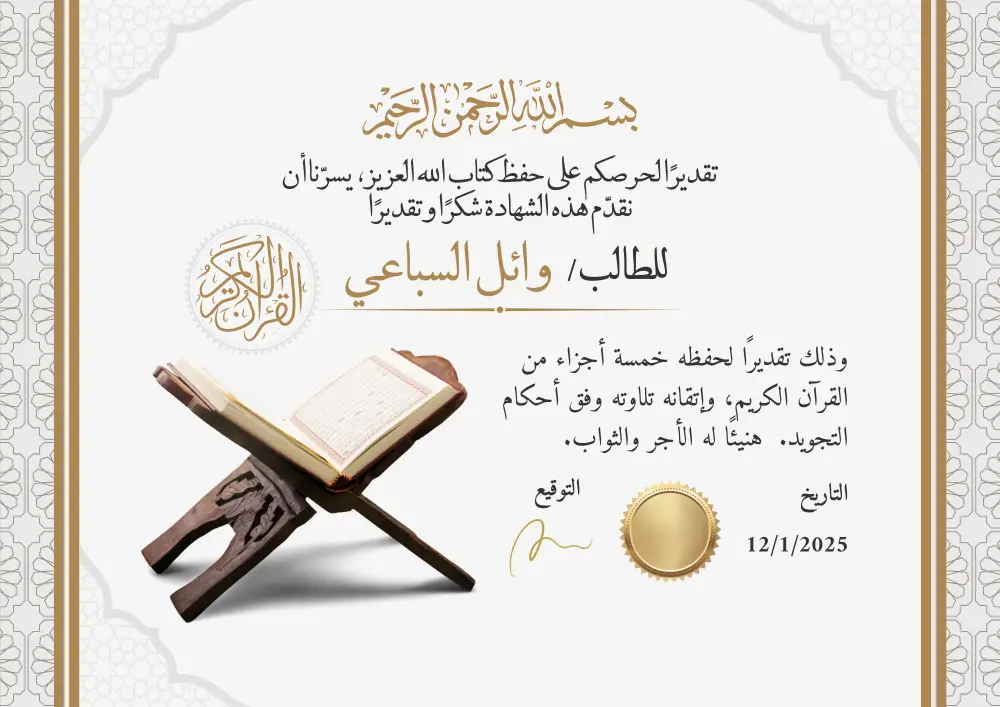 بسم الله الرحمن الرحيم
تقديرًا لحرصكم على حفظ كتاب الله العزيز، يسرّنا أن
نقدّم هذه الشهادة شكرًا وتقديرًا
للطالب/ وائل السباعي
القرآن الكريم
وذلك تقديرًا لحفظه خمسة أجزاء من
القرآن الكريم، وإتقانه تلاوته وفق أحكام
التجويد. هنيئًا له الأجر والثواب.
التاريخ
التوقيع
12/1/2025